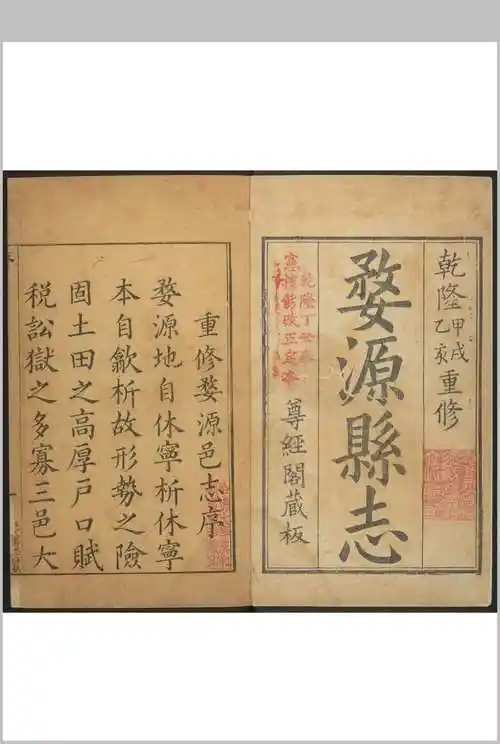 乾隆甲戌乙亥重修
婺源縣志
乾隆丁丑春
憲檄彰改正定本
尊經閣藏板
重修婺源邑志序
婺源地自休寧析休寧
本自歙析故形勢之險
固土田之高厚戶口賦
稅訟獄之多寡三邑大